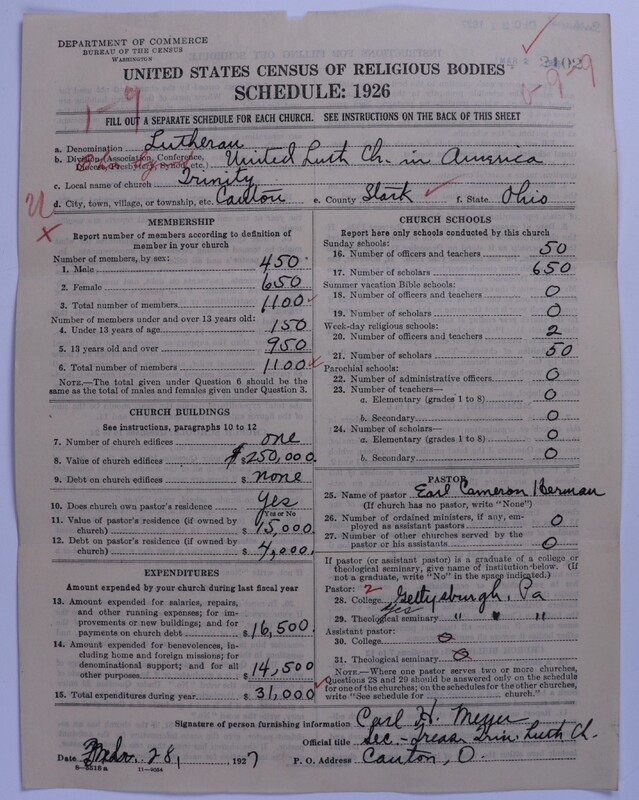 DEPARTMENT OF COMMERCE
BUREAU OF THE CENSUS
WASHINGTON
2402
UNITED STATES CENSUS OF RELIGIOUS BODIES
SCHEDULE: 1926
1-9
FILL OUT A SEPARATE SCHEDULE FOR EACH CHURCH. SEE INSTRUCTIONS ON THE BACK OF THIS SHEET
a. Denomination Lutheran
b. Division (Association, Conference, Diocese, Presbytery, Synod, etc.) United Luth Ch. in America
c. Local name of church Trinity
d. City, town, village, or township, etc. Canton e. County Stark f. State Ohio
MEMBERSHIP
Report number of members according to definition of
member in your church
Number of members, by sex:
1. Male 450
2. Female 650
3. Total number of members 1100
Number of members under and over 13 years old:
4. Under 13 years of age 150
5. 13 years old and over 950
6. Total number of members 1100
NOTE.—The total given under Question 6 should be
same as the total of males and females given under Question 3.
CHURCH BUILDINGS
See instructions, paragraphs 10 to 12
7. Number of church edifices one
8. Value of church edifices $250,000.
9. Debt on church edifices $ none
10. Does church own pastor's residence Yes
(Yes or No)
11. Value of pastor's residence (if owned by
church) $ 15,000.
12. Debt on pastor's residence (if owned by
church) $ 4,000.
EXPENDITURES
Amount expended by your church during last fiscal year
13. Amount expended for salaries, repairs,
and other running expenses; for im-
provements or new buildings; and for
payments on church debt $ 16,500
14. Amount expended for benevolences, in-
cluding home and foreign missions; for
denominational support; and for all
other purposes $ 14,500
15. Total expenditures during year $ 31,000
CHURCH SCHOOLS
Report here only schools conducted by this church
Sunday schools:
16. Number of officers and teachers 50
17. Number of scholars 650
Summer vacation Bible schools:
18. Number of officers and teachers 0
19. Number of scholars 0
Week-day religious schools:
20. Number of officers and teachers 2
21. Number of scholars 50
Parochial schools:
22. Number of administrative officers 0
23. Number of teachers—
a. Elementary (grades 1 to 8) 0
b. Secondary 0
24. Number of scholars—
a. Elementary (grades 1 to 8) 0
b. Secondary 0
PASTOR
25. Name of pastor Earl Cameron Herman
(If church has no pastor, write "None")
26. Number of ordained ministers, if any, em-
ployed as assistant pastors 0
27. Number of other churches served by the
pastor or his assistants 0
If pastor (or assistant pastor) is a graduate of a college or
theological seminary, give name of institution below. (If
not a graduate, write "No" in the space indicated.)
Pastor: 2
28. College Gettysburgh, Pa
29. Theological seminary yes " " "
Assistant pastor:
30. College 0
31. Theological seminary 0
NOTE.—Where one pastor serves two or more churches,
Questions 28 and 29 should be answered only on the schedule
for one of the churches; on the schedules for the other churches,
write "See schedule for church."
Signature of person furnishing information Carl H. Meyer
Official title Sec.-Treas Trin. Luth Ch.
Date 28, 1927 P. O. Address Canton, O.
8-5518 a 11-9024